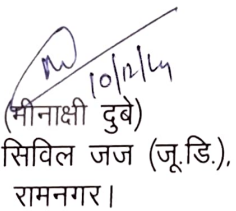 10/12/24
(मीनाक्षी दुबे)
सिविल जज (जू.डि.),
रामनगर।